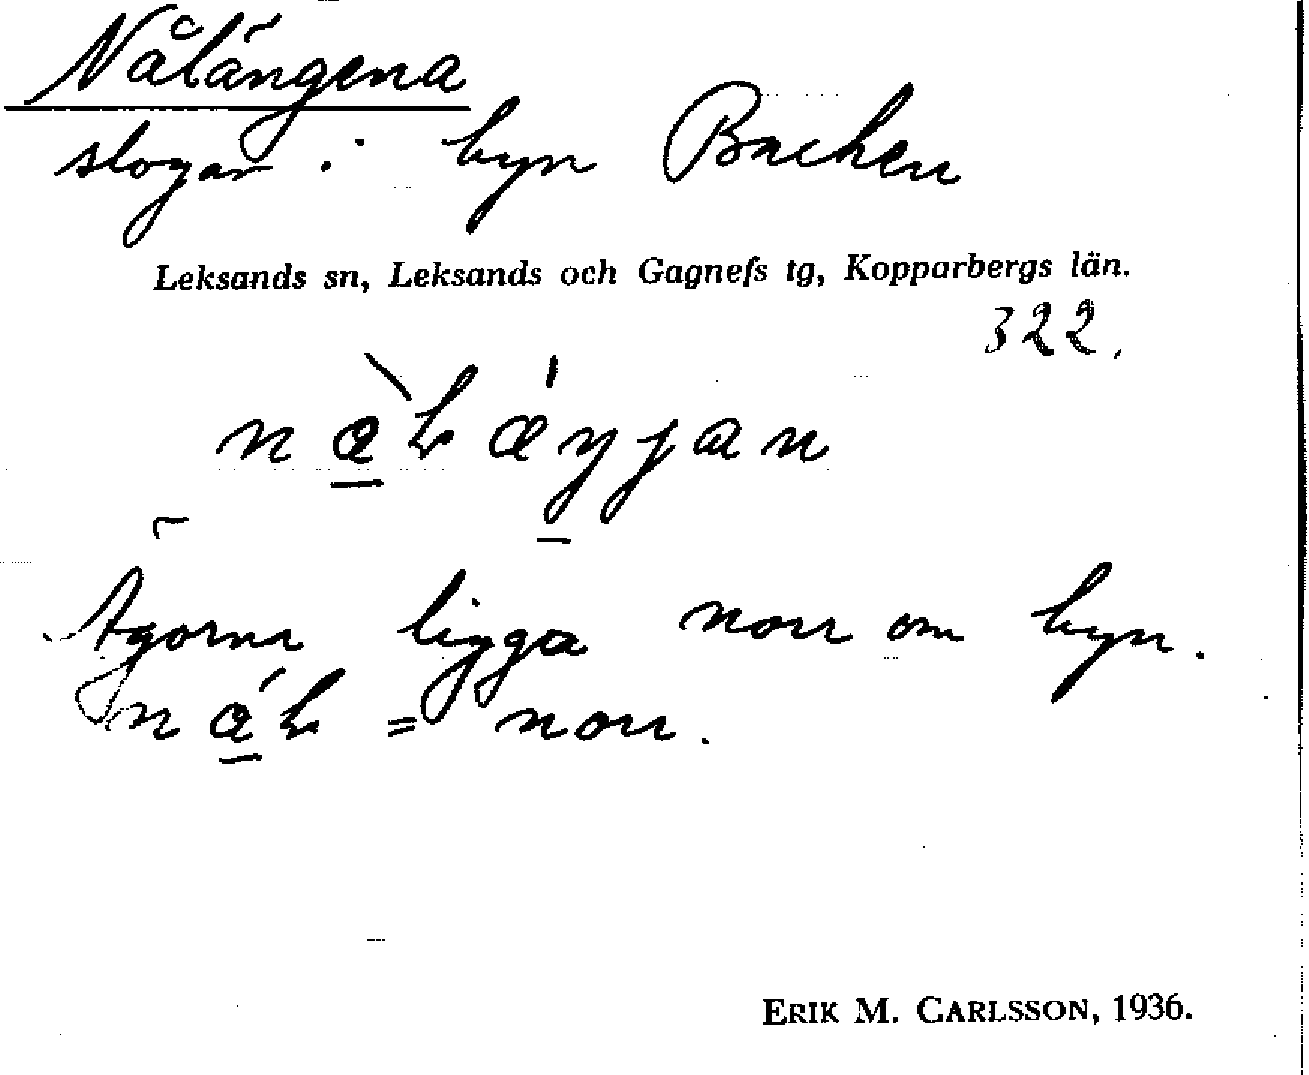 Nålängena
slogar i byn Backen
Leksands sn, Leksands och Gagnefs tg, Kopparbergs län.
322.
Ägorna ligga norr om byn.
= norr.
ERIK M. CARLSSON, 1936.